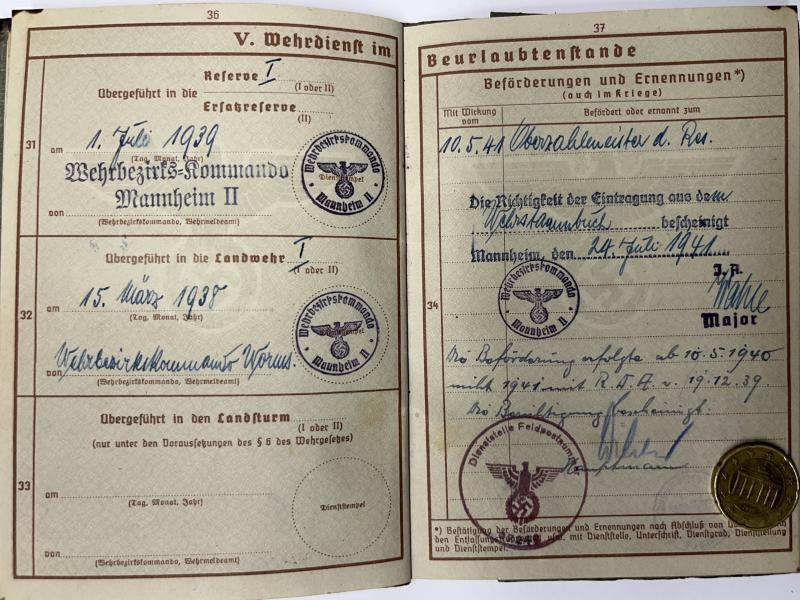 36
V. Wehrdienst im
Reserve I
Übergeführt in die (I oder II)
Ersatzreserve
(II)
31
am 1. Juli 1939
(Tag, Monat, Jahr)
Wehrbezirks-Kommando
Mannheim II
von
(Wehrbezirkskommando, Wehrmeldeamt)
Wehrbezirkskommando
Dienststempel
Mannheim II
Übergeführt in die Landwehr I
(I oder II)
32
am 15. März 1938
(Tag, Monat, Jahr)
von Wehrbezirkskommando Worms.
(Wehrbezirkskommando, Wehrmeldeamt)
Wehrbezirkskommando
Mannheim II
Übergeführt in den Landsturm
(I oder II)
(nur unter den Voraussetzungen des § 6 des Wehrgesetzes)
33
am
(Tag, Monat, Jahr)
Dienststempel
von
(Wehrbezirkskommando, Wehrmeldeamt)
37
Beurlaubtenstande
Beförderungen und Ernennungen*)
(auch im Kriege)
Mit Wirkung vom
Befördert oder ernannt zum
10.5.41 Oberzahlmeister d. Res.
Die Richtigkeit der Eintragung aus dem
Wehrstammbuch bescheinigt
Mannheim, den 24. Juli 1941.
34
Wehrbezirkskommando
Mannheim II
Major
Beförderung erfolgte ab 10.5.1940
nicht 1941 mit R.D.A. v. 19.12.39.
bescheinigt:
Hauptmann
Dienststelle Feldpostnummer
*) Bestätigung der Beförderungen und Ernennungen nach Abschluß von
den Entlassungs usw. mit Dienststelle, Unterschrift, Dienstgrad, Dienststellung
und Dienststempel.